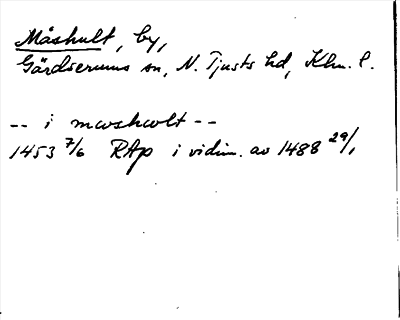 Måshult, by,
Gärdserums sn, N. Tjusts hd, Klm. l.
-- i mwshwlt --
1453 7/6 RAp i vidim. av 1488 29/1